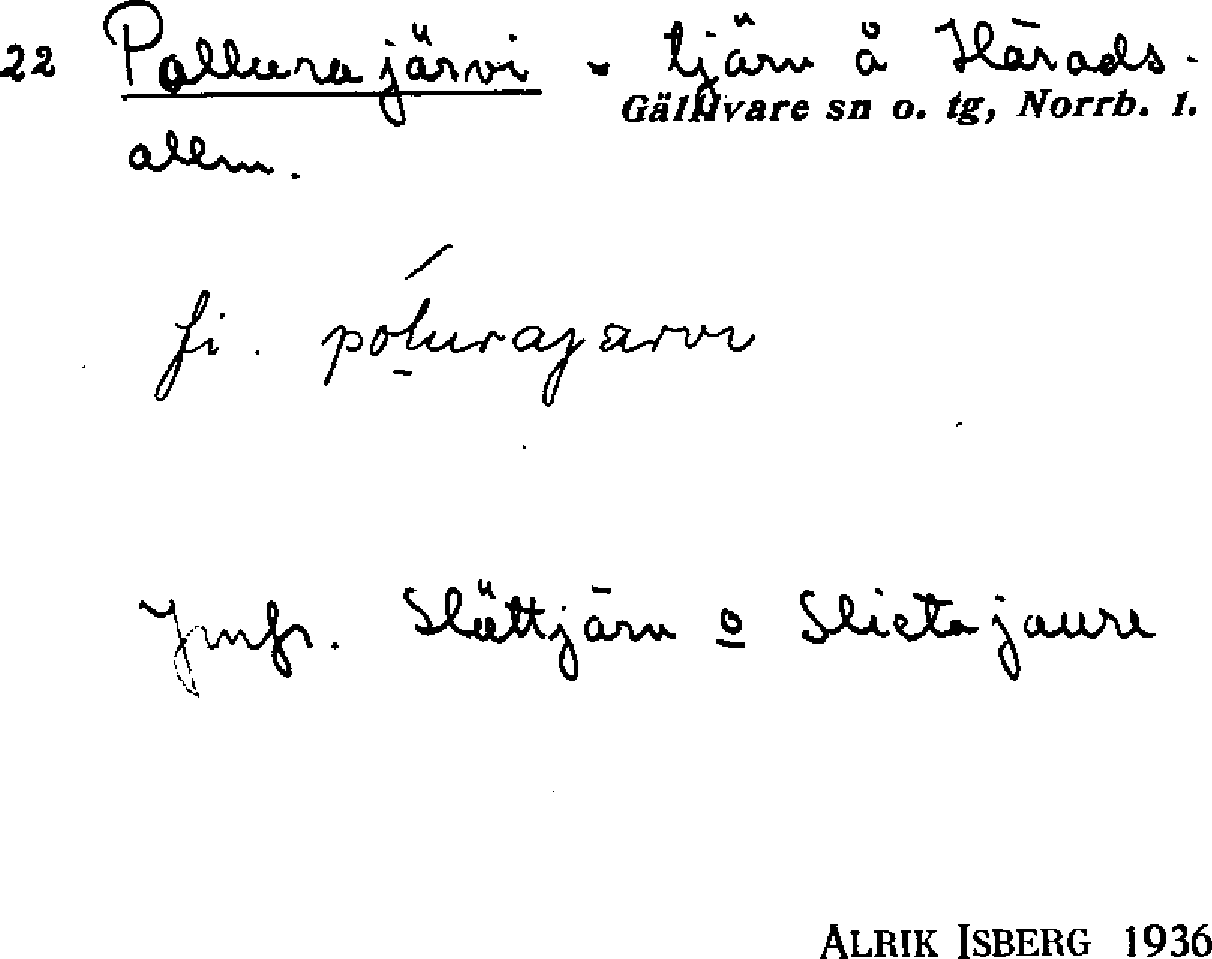 22 Pollurajärvi - tjärn å Härads-
Gällivare sn o. tg, Norrb. l.
allm.
fi. poturajarvi
Jmfr. Slättjärn o Slietajaure
ALRIK ISBERG 1936